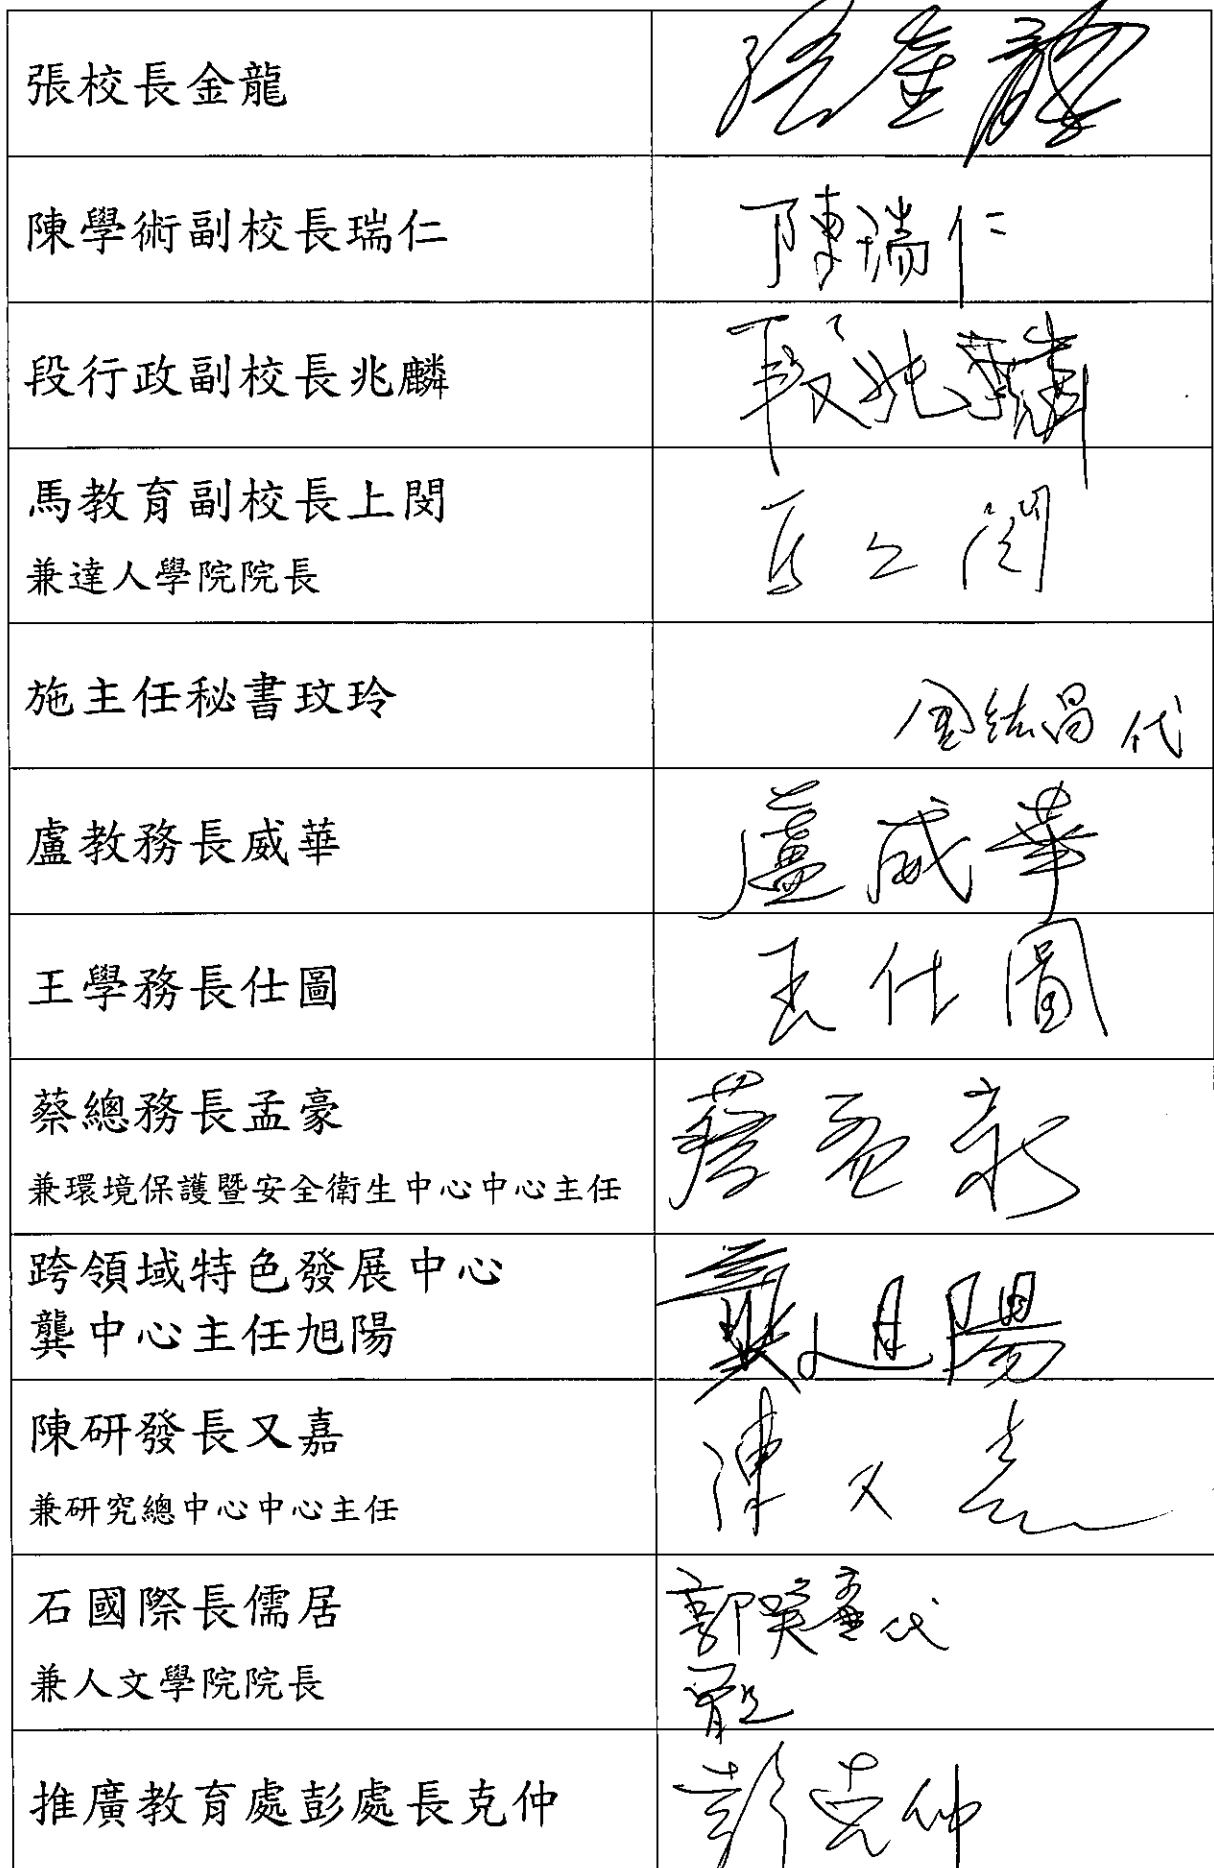 張校長金龍
張金龍
陳學術副校長瑞仁
陳瑞仁
段行政副校長兆麟
段兆麟
馬教育副校長上閔
兼達人學院院長
馬上閔
施主任秘書玟玲
代
盧教務長威華
盧威華
王學務長仕圖
王仕圖
蔡總務長孟豪
兼環境保護暨安全衛生中心中心主任
蔡孟豪
跨領域特色發展中心
龔中心主任旭陽
龔旭陽
陳研發長又嘉
兼研究總中心中心主任
陳又嘉
石國際長儒居
兼人文學院院長
代
推廣教育處彭處長克仲
彭克仲